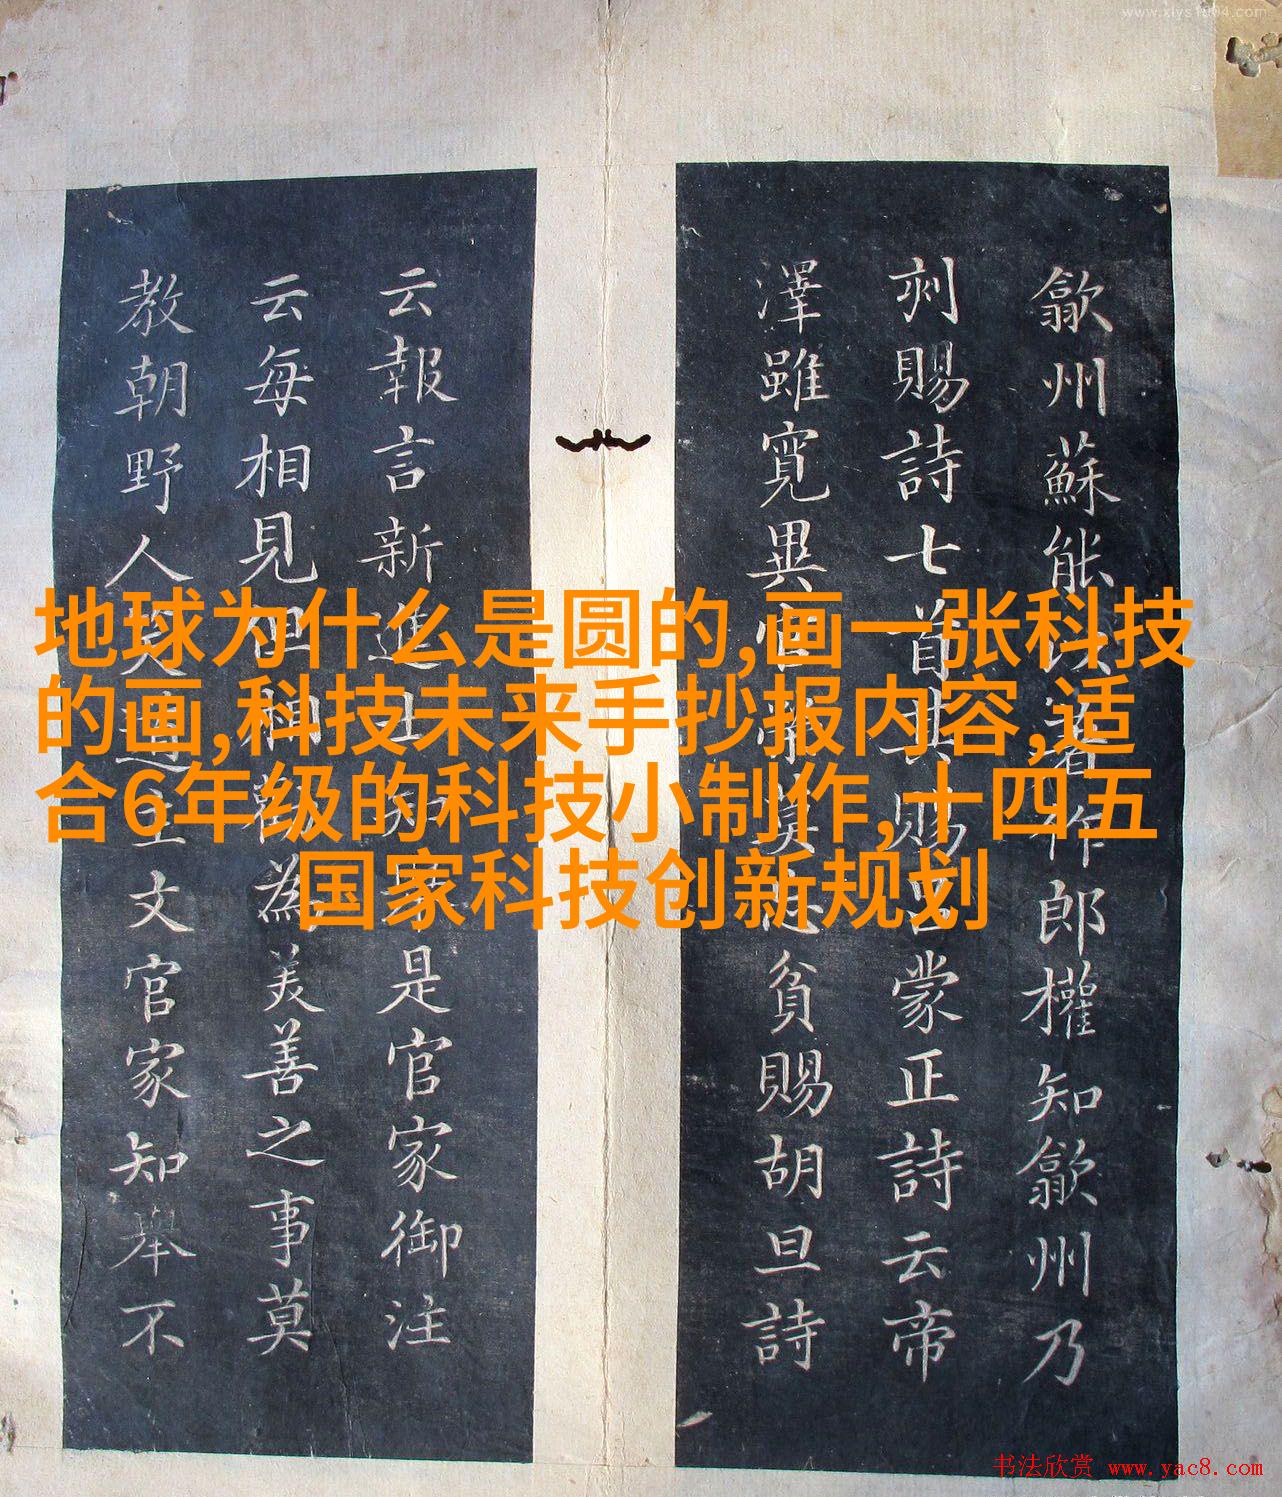 www.xiys1004.com
歙州蘇能
郎權知歙州乃
刺賜詩七首其賜呂蒙正詩云帝
澤雖寬異
貧賜胡旦詩
云報言新進士
是官家御注
云每相見
為美善之事莫
教朝野人
文官家知舉不
地球为什么是圆的,画一张科技
的画,科技未来手抄报内容,适
合6年级的科技小制作,十四五
国家科技创新规划
书法欣赏 www.yac8.com